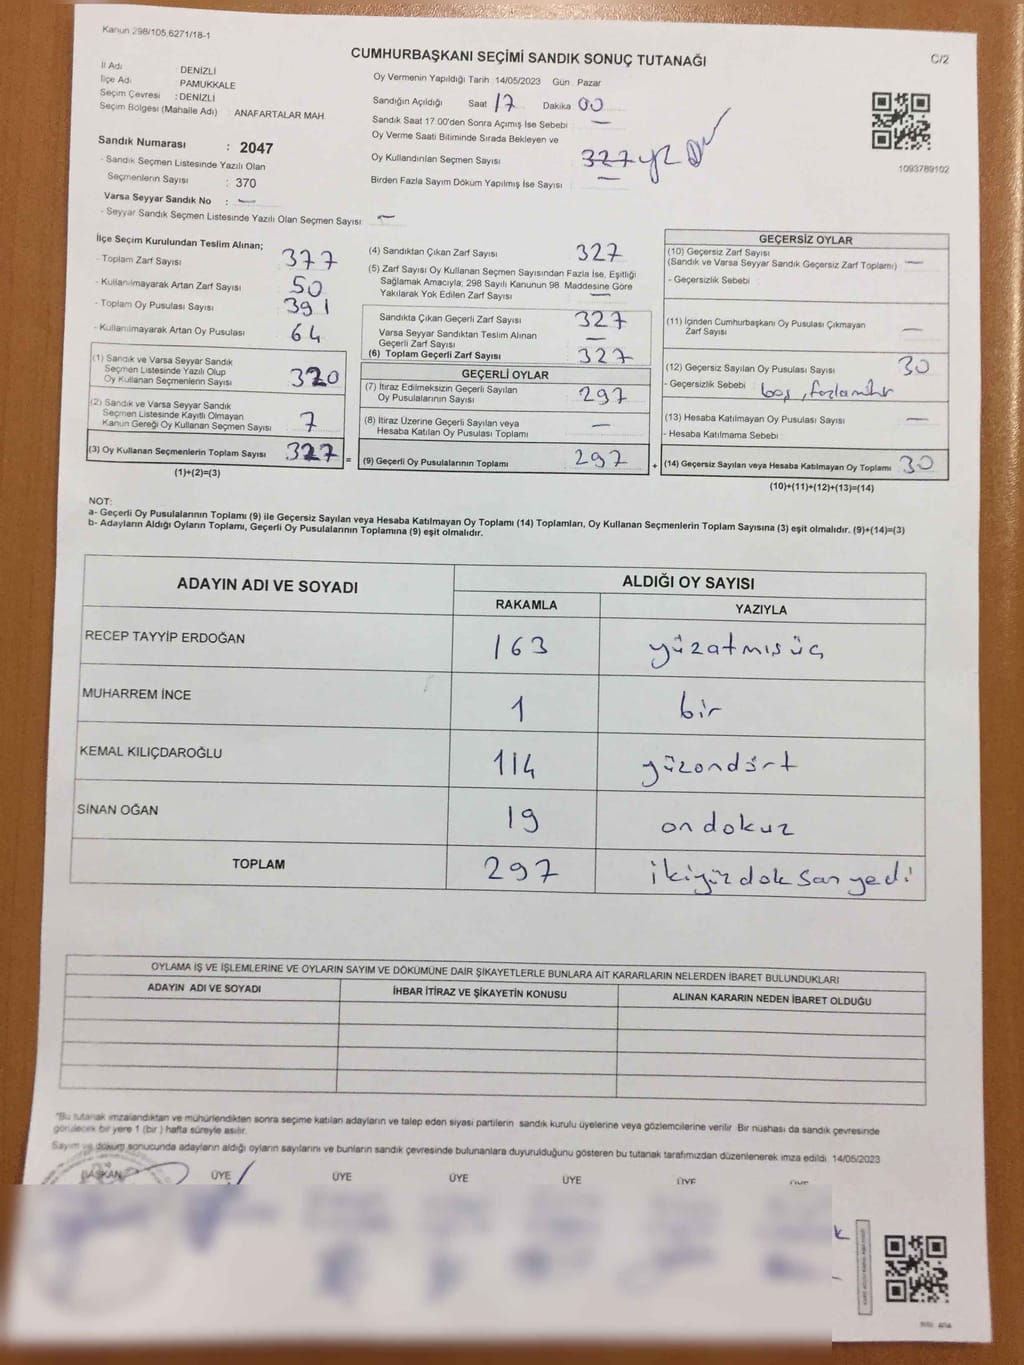 Kanun 298/105,6271/18-1
CUMHURBAŞKANI SEÇİMİ SANDIK SONUÇ TUTANAĞI
C/2
İl Adı : DENİZLİ
İlçe Adı : PAMUKKALE
Seçim Çevresi : DENİZLİ
Seçim Bölgesi (Mahalle Adı) : ANAFARTALAR MAH.
Sandık Numarası : 2047
- Sandık Seçmen Listesinde Yazılı Olan
Seçmenlerin Sayısı : 370
Varsa Seyyar Sandık No : —
- Seyyar Sandık Seçmen Listesinde Yazılı Olan Seçmen Sayısı —
Oy Vermenin Yapıldığı Tarih 14/05/2023 Gün Pazar
Sandığın Açıldığı Saat 17 Dakika 00
Sandık Saat 17 00'den Sonra Açımış İse Sebebi —
Oy Verme Saati Bitiminde Sırada Bekleyen ve
Oy Kullandırılan Seçmen Sayısı 327
Birden Fazla Sayım Döküm Yapılmış İse Sayısı —
1093789102
İlçe Seçim Kurulundan Teslim Alınan;
- Toplam Zarf Sayısı 377
- Kullanılmayarak Artan Zarf Sayısı 50
- Toplam Oy Pusulası Sayısı 391
- Kullanılmayarak Artan Oy Pusulası 64
(1) Sandık ve Varsa Seyyar Sandık
Seçmen Listesinde Yazılı Olup
Oy Kullanan Seçmenlerin Sayısı 320
(2) Sandık ve Varsa Seyyar Sandık
Seçmen Listesinde Kayıtlı Olmayan
Kanun Gereği Oy Kullanan Seçmen Sayısı 7
(3) Oy Kullanan Seçmenlerin Toplam Sayısı 327 =
(1)+(2)=(3)
(4) Sandıktan Çıkan Zarf Sayısı 327
(5) Zarf Sayısı Oy Kullanan Seçmen Sayısından Fazla İse, Eşitliği
Sağlamak Amacıyla, 298 Sayılı Kanunun 98. Maddesine Göre
Yakılarak Yok Edilen Zarf Sayısı —
Sandıkta Çıkan Geçerli Zarf Sayısı 327
Varsa Seyyar Sandıktan Teslim Alınan
Geçerli Zarf Sayısı —
(6) Toplam Geçerli Zarf Sayısı 327
GEÇERLİ OYLAR
(7) İtiraz Edilmeksizin Geçerli Sayılan
Oy Pusulalarının Sayısı 297
(8) İtiraz Üzerine Geçerli Sayılan veya
Hesaba Katılan Oy Pusulası Toplamı —
(9) Geçerli Oy Pusulalarının Toplamı 297 +
GEÇERSİZ OYLAR
(10) Geçersiz Zarf Sayısı
(Sandık ve Varsa Seyyar Sandık Geçersiz Zarf Toplamı) —
- Geçersizlik Sebebi
(11) İçinden Cumhurbaşkanı Oy Pusulası Çıkmayan
Zarf Sayısı —
(12) Geçersiz Sayılan Oy Pusulası Sayısı 30
- Geçersizlik Sebebi boş, fazla mühür
(13) Hesaba Katılmayan Oy Pusulası Sayısı —
- Hesaba Katılmama Sebebi
(14) Geçersiz Sayılan veya Hesaba Katılmayan Oy Toplamı 30
(10)+(11)+(12)+(13)=(14)
NOT:
a- Geçerli Oy Pusulalarının Toplamı (9) ile Geçersiz Sayılan veya Hesaba Katılmayan Oy Toplamı (14) Toplamları, Oy Kullanan Seçmenlerin Toplam Sayısına (3) eşit olmalıdır. (9)+(14)=(3)
b- Adayların Aldığı Oyların Toplamı, Geçerli Oy Pusulalarının Toplamına (9) eşit olmalıdır.
ADAYIN ADI VE SOYADI
ALDIĞI OY SAYISI
RAKAMLA YAZIYLA
RECEP TAYYİP ERDOĞAN 163 yüzatmışüç
MUHARREM İNCE 1 bir
KEMAL KILIÇDAROĞLU 114 yüzondört
SİNAN OĞAN 19 ondokuz
TOPLAM 297 ikiyüzdoksanyedi
OYLAMA İŞ VE İŞLEMLERİNE VE OYLARIN SAYIM VE DÖKÜMÜNE DAİR ŞİKAYETLERLE BUNLARA AİT KARARLARIN NELERDEN İBARET BULUNDUKLARI
ADAYIN ADI VE SOYADI İHBAR İTİRAZ VE ŞİKAYETİN KONUSU ALINAN KARARIN NEDEN İBARET OLDUĞU
*Bu tutanak imzalandıktan ve mühürlendikten sonra seçime katılan adayların ve talep eden siyasi partilerin sandık kurulu üyelerine veya gözlemcilerine verilir. Bir nüshası da sandık çevresinde
görülecek bir yere 1 (bir) hafta süreyle asılır.
Sayım ve döküm sonucunda adayların aldığı oyların sayılarını ve bunların sandık çevresinde bulunanlara duyurulduğunu gösteren bu tutanak tarafımızdan düzenlenerek imza edildi. 14/05/2023
BAŞKAN ÜYE ÜYE ÜYE ÜYE ÜYE ÜYE